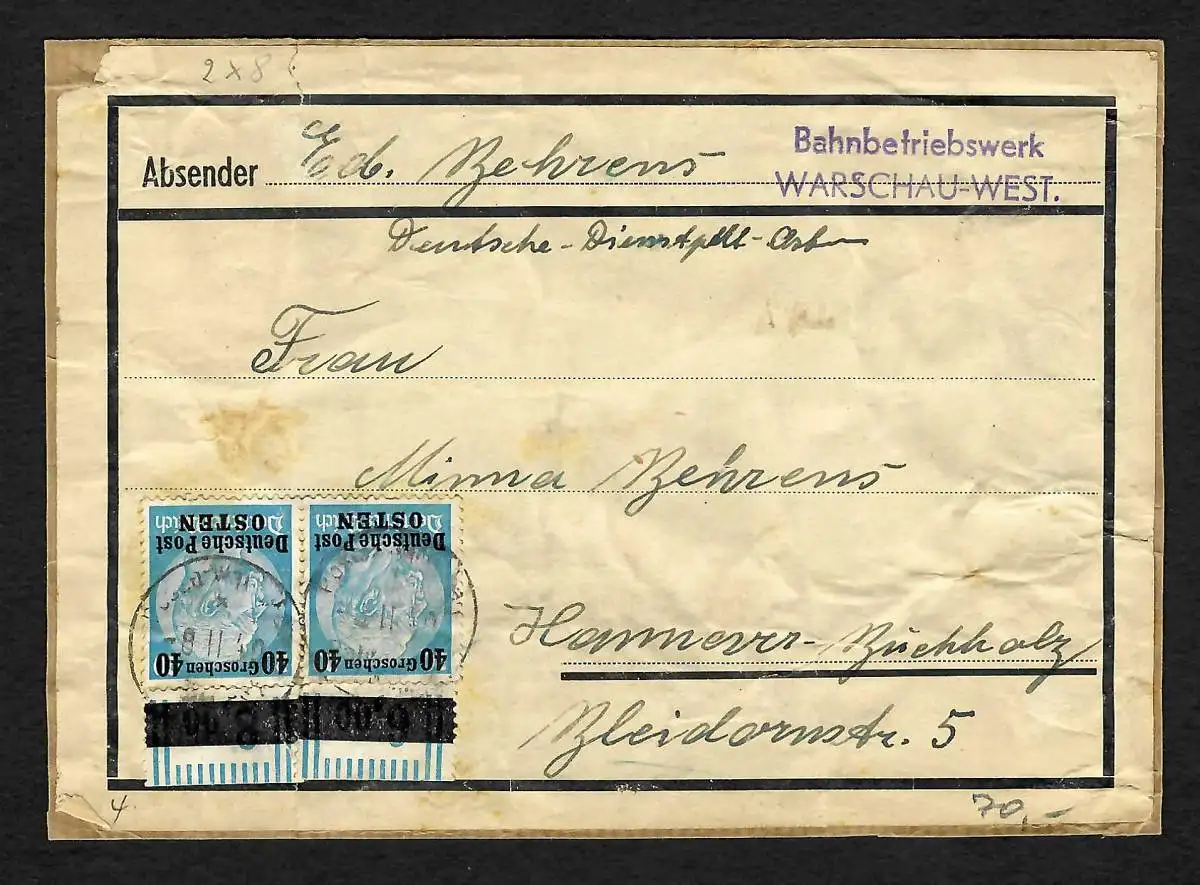 2x8
Absender Ed. Behrens
Bahnbetriebswerk
WARSCHAU-WEST.
Deutsche-Dienstpost-Osten
Frau
Minna Behrens
Hannover-Buchholz
Bleidornstr. 5
Deutsche Post
OSTEN
40 Groschen 40
Deutsche Post
OSTEN
40 Groschen 40
4.
70,-